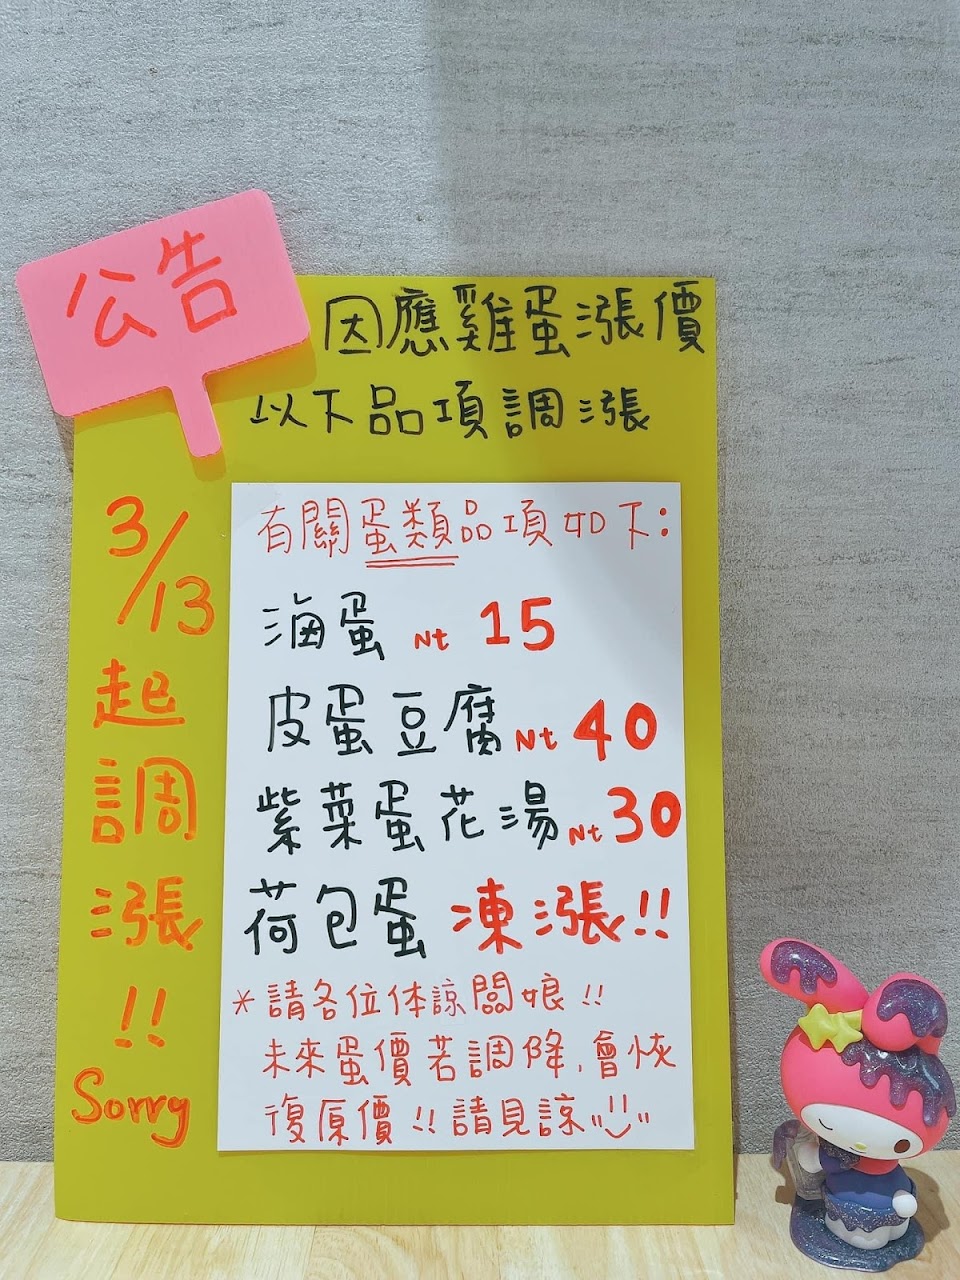 公告
因應雞蛋漲價
以下品項調漲
3/13起調漲!!
Sorry
有關蛋類品項如下:
滷蛋 Nt 15
皮蛋豆腐 Nt 40
紫菜蛋花湯 Nt 30
荷包蛋 凍漲!!
*請各位体諒闆娘!!
未來蛋價若調降,會恢
復原價!!請見諒